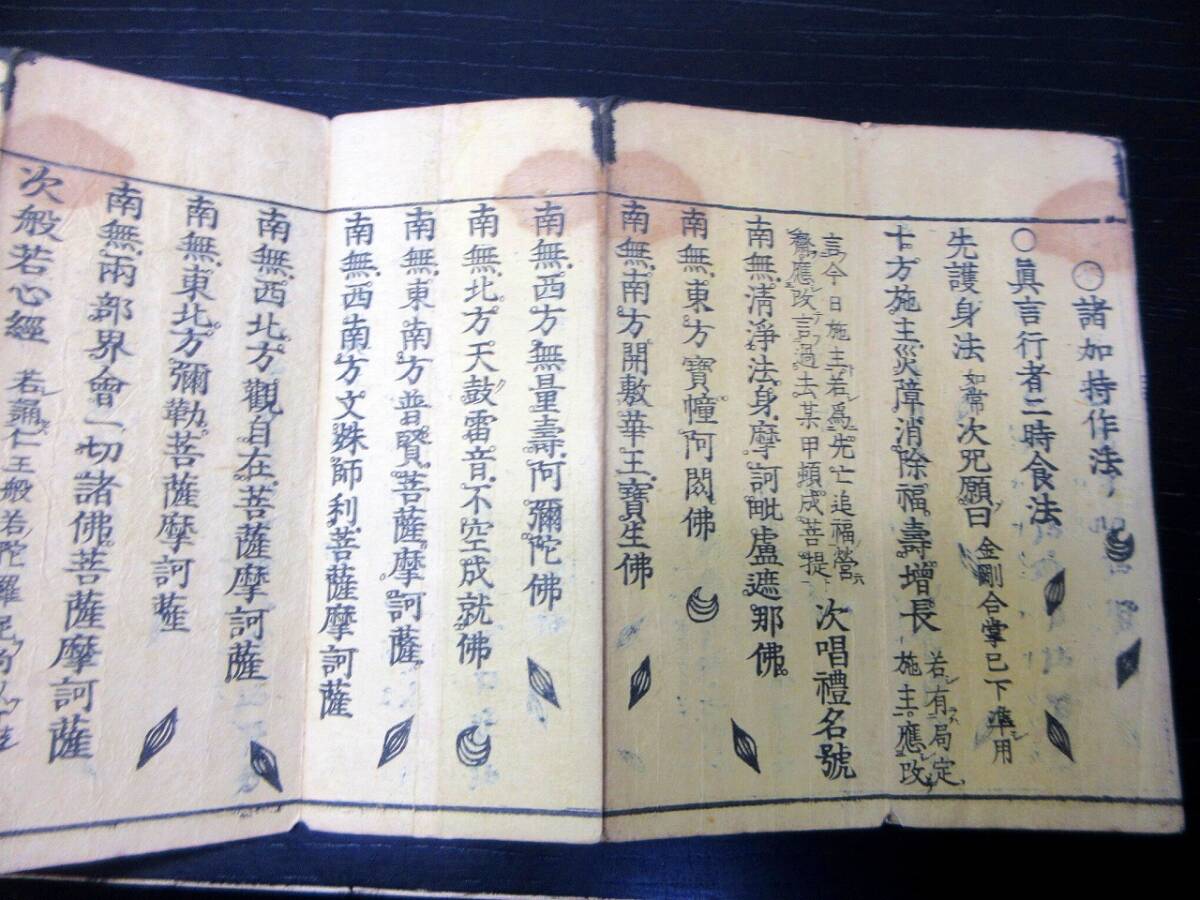 諸加持作法
○眞言行者二時食法
先護身法如常次咒願曰金剛合掌已下準用
十方施主災障消除福壽增長若有局定施主應改
言今日施主若爲先亡追福營
齋應改言過去某甲頓成菩提次唱禮名號
南無清淨法身摩訶毗盧遮那佛
南無東方寶幢阿閦佛
南無南方開敷華王寶生佛
南無西方無量壽阿彌陀佛
南無北方天鼓雷音不空成就佛
南無東南方普賢菩薩摩訶薩
南無西南方文殊師利菩薩摩訶薩
南無西北方觀自在菩薩摩訶薩
南無東北方彌勒菩薩摩訶薩
南無兩部界會一切諸佛菩薩摩訶薩
次般若心經若誦仁王般若陀羅尼